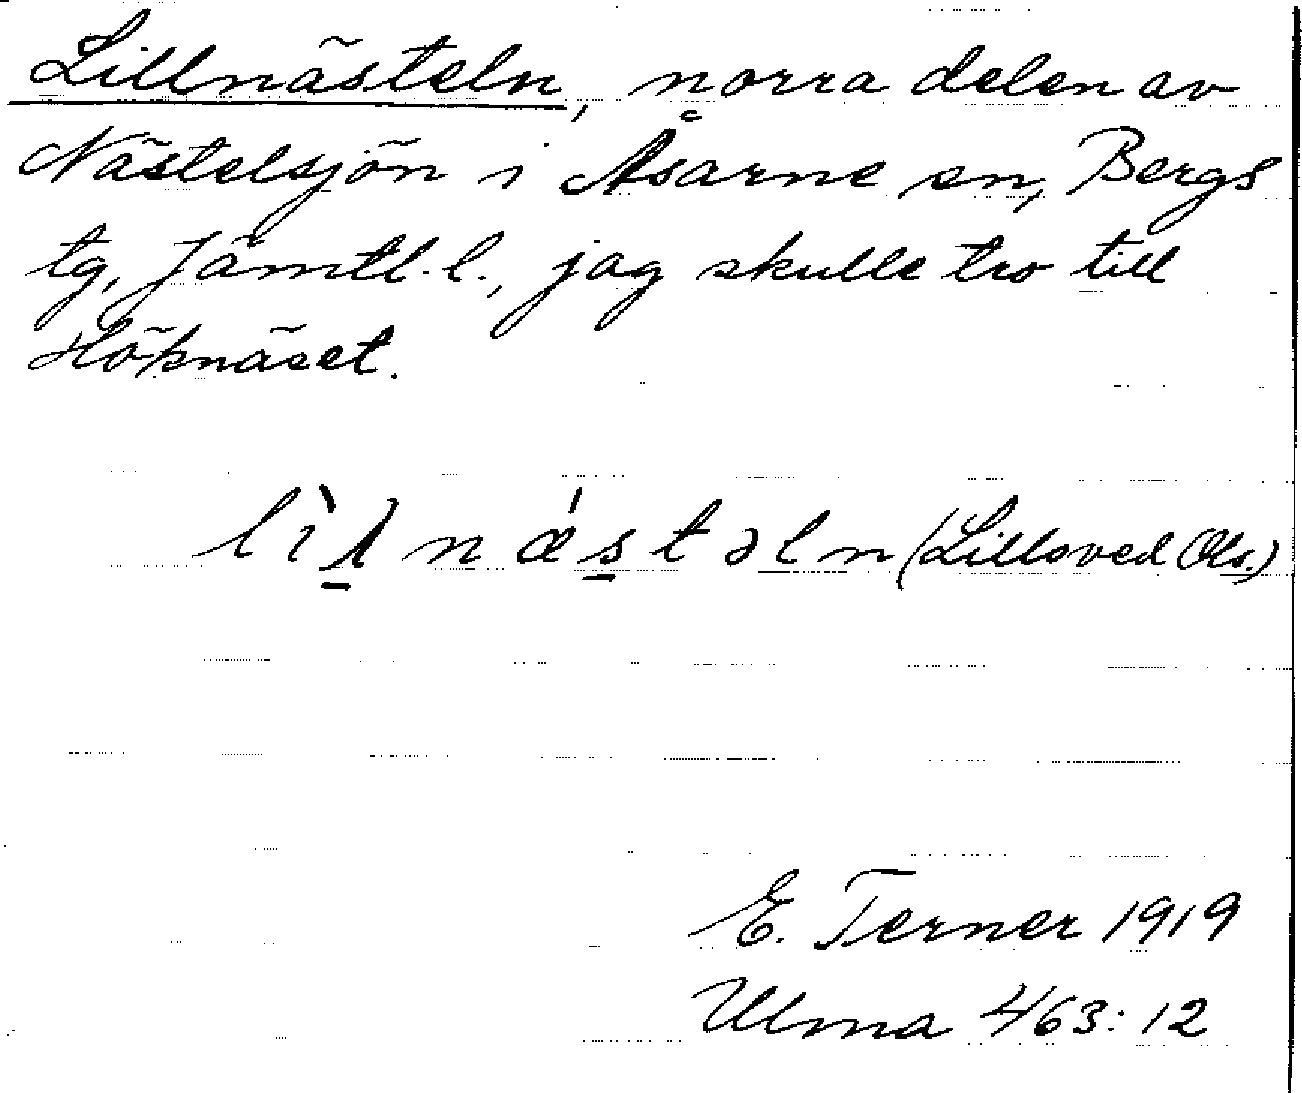 Lillnästeln, norra delen av
Nästelsjön i Åsarne sn, Bergs
tg, Jämtl. l., jag skulle tro till
Höknäset.
lìḻnǽs̱təln (Lillsved Ols.)
E. Terner 1919
Ulma 463:12